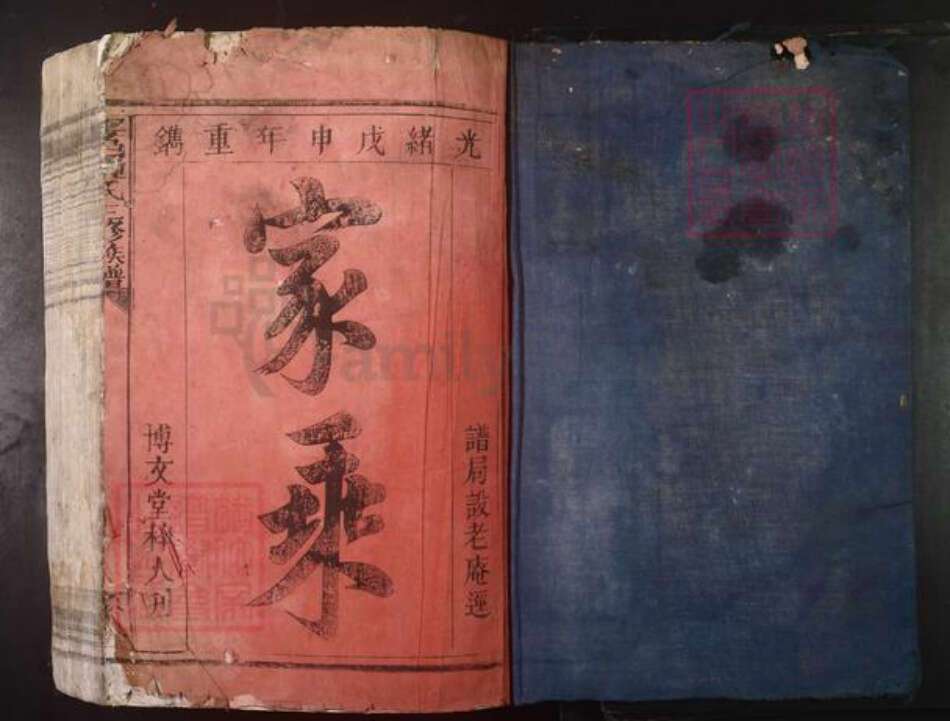 光緒戊申年重鐫
譜局設老庵運
家乘
博文堂梓人刊
氏三修族譜
family